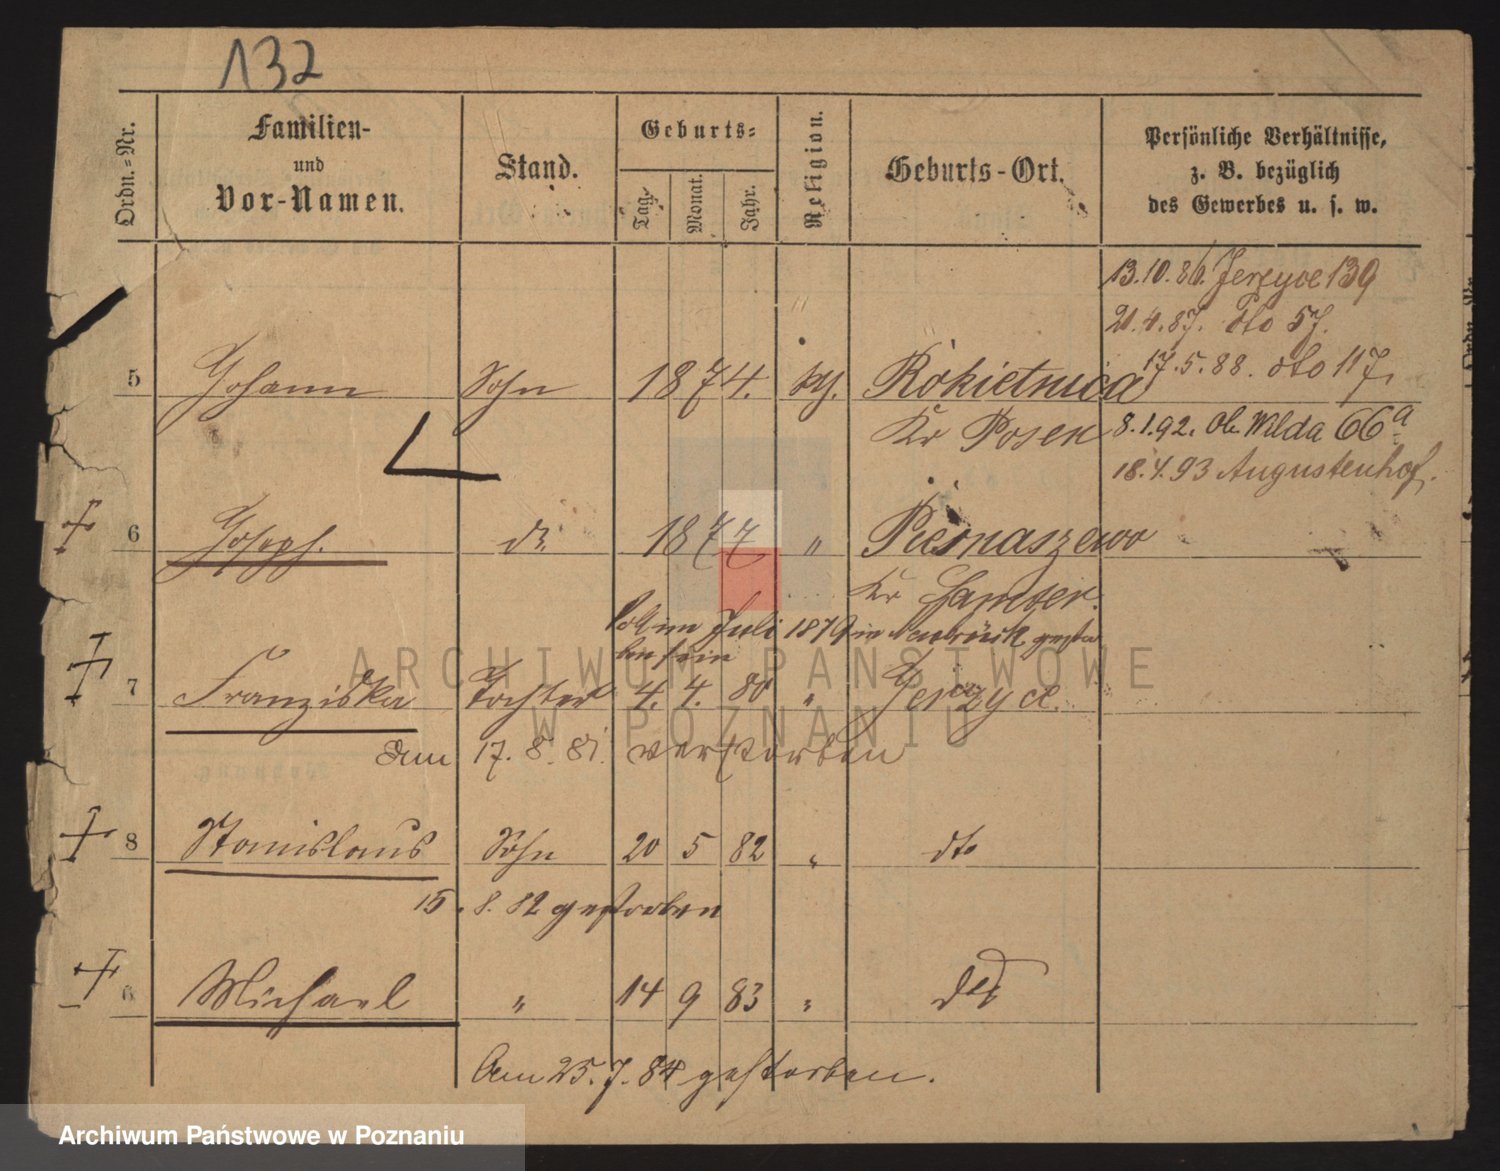 132
Ordn.-Nr.
Familien-
und
Vor-Namen.
Stand.
Geburts-
Tag.
Monat.
Jahr.
Religion.
Geburts-Ort.
Persönliche Verhältnisse,
z. B. bezüglich
des Gewerbes u. s. w.
13.10.86. Jerzyce 139
21.4.87. dto 57.
17.5.88. dto 117.
5 Johann Sohn 1874. kth. Rokietnica
Kr Posen 8.1.92. Ob. Wilda 66a
18.4.93 Augustenhof.
6 Joseph. do 1877 "
Kr Samter.
Soll im Juli 1879 in
7 Franziska Tochter 4. 4. 80 " Jerzyce.
den 17. 8. 81. verstorben
8 Stanislaus Sohn 20 5 82 " dto
15. 8. 82 gestorben
Michael " 14 9 83 " dto
Am 25. 7. 84 gestorben.
ARCHIWUM PAŃSTWOWE
W POZNANIU
Archiwum Państwowe w Poznaniu